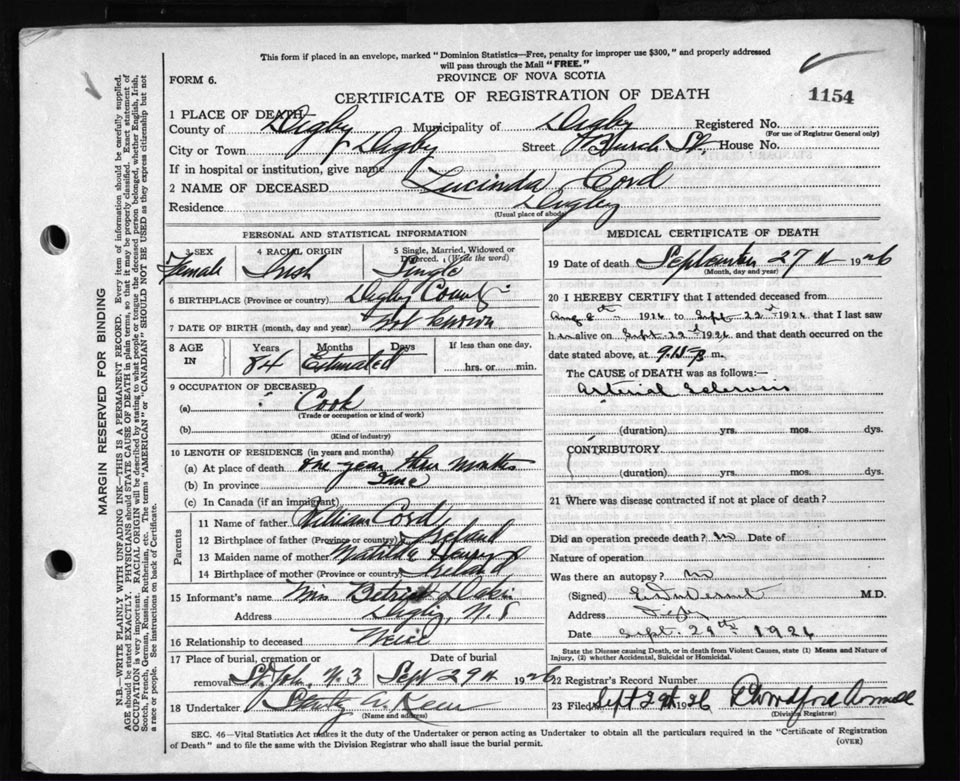 This form if placed in an envelope, marked "Dominion Statistics—Free, penalty for improper use $300," and properly addressed
will pass through the Mail "FREE."
FORM 6.
PROVINCE OF NOVA SCOTIA
CERTIFICATE OF REGISTRATION OF DEATH
1154
1 PLACE OF DEATH
County of Digby Municipality of Digby Registered No.
(For use of Registrar General only)
City or Town Digby Street St. House No.
If in hospital or institution, give name
2 NAME OF DECEASED Lucinda Cord
Residence Digby
(Usual place of abode)
PERSONAL AND STATISTICAL INFORMATION
3 SEX Female
4 RACIAL ORIGIN Irish
5 Single, Married, Widowed or Divorced. (Write the word) Single
6 BIRTHPLACE (Province or country) Digby County
7 DATE OF BIRTH (month, day and year) not known
8 AGE IN Years Months Days If less than one day,
84 Estimated hrs. or min.
9 OCCUPATION OF DECEASED
(a) Cook
(Trade or occupation or kind of work)
(b)
(Kind of industry)
10 LENGTH OF RESIDENCE (in years and months)
(a) At place of death one year three months
(b) In province
(c) In Canada (if an immigrant)
Parents
11 Name of father William Cord
12 Birthplace of father (Province or country) Ireland
13 Maiden name of mother Matilda
14 Birthplace of mother (Province or country) Ireland
15 Informant's name Mrs
Address Digby, N.S
16 Relationship to deceased Neice
17 Place of burial, cremation or removal Date of burial
Sept 29th 1926
18 Undertaker
(Name and address)
MEDICAL CERTIFICATE OF DEATH
19 Date of death September 27th 1926
(Month, day and year)
20 I HEREBY CERTIFY that I attended deceased from
Aug 8th 1926 to Sept. 22nd 1926, that I last saw
h alive on Sept. 22nd 1926, and that death occurred on the
date stated above, at m.
The CAUSE of DEATH was as follows:—
Arterial Sclerosis
(duration) yrs. mos. dys.
CONTRIBUTORY
(duration) yrs. mos. dys.
21 Where was disease contracted if not at place of death?
Did an operation precede death? no Date of
Nature of operation
Was there an autopsy? no
(Signed) M.D.
Address Digby
Date Sept. 29th 1926
State the Disease causing Death, or in death from Violent Causes, state (1) Means and Nature of
Injury, (2) whether Accidental, Suicidal or Homicidal.
22 Registrar's Record Number
23 Filed Sept 29th 1926
(Division Registrar)
SEC. 46—Vital Statistics Act makes it the duty of the Undertaker or person acting as Undertaker to obtain all the particulars required in the "Certificate of Registration
of Death" and to file the same with the Division Registrar who shall issue the burial permit.
(OVER)
MARGIN RESERVED FOR BINDING
N.B.—WRITE PLAINLY WITH UNFADING INK—THIS IS A PERMANENT RECORD. Every item of information should be carefully supplied.
AGE should be stated EXACTLY. PHYSICIANS should STATE CAUSE OF DEATH in plain terms, so that it may be properly classified. Exact statement of
OCCUPATION is very important. RACIAL ORIGIN will be described by stating to what people or tongue the deceased person belonged, whether English, Irish,
Scotch, French, German, Russian, Ruthenian, etc. The terms "AMERICAN" or "CANADIAN" SHOULD NOT BE USED as they express citizenship but not
a race or people. See instructions on back of Certificate.